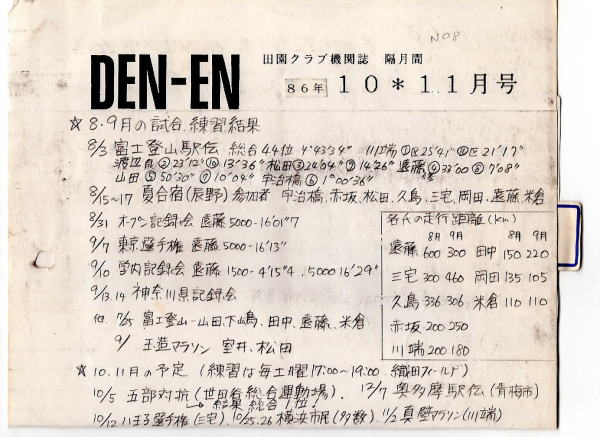 NO8
田園クラブ機関誌 隔月間
DEN-EN
86年 10*11月号
☆ 8・9月の試合.練習結果
8/3 富士登山駅伝 総合44位 4°43'34" 川端①区25'41" ⑪区21'17"
渡辺良②23'12" ⑩13'36" 松田③24'04" ⑨14'26" 遠藤④33'00 ⑧7'08"
山田⑤50'30" ⑦10'04" 宇治橋⑥1°00'36"
8/15~17 夏合宿(辰野)参加者 宇治橋.赤坂.松田.久島.三宅.岡田.遠藤.米倉
8/31 オープン記録会 遠藤5000-16'01"7
9/7 東京選手権 遠藤5000-16'13"
9/10 学内記録会 遠藤1500-4'15"4 .5000 16'29"
9/13.14 神奈川県記録会
他 7/25 富士登山-山田.下嶋.田中.遠藤.米倉
9/ 玉造マラソン 室井.松田
各氏の走行距離(km)
8月 9月 8月 9月
遠藤 600 300 田中 150 220
三宅 300 460 岡田 135 105
久島 336 306 米倉 110 110
赤坂 200 250
川端 200 180
☆ 10.11月の予定 (練習は毎土曜17:00~19:00 織田フィールド)
10/5 五部対抗(世田谷総合運動場). 12/7 奥多摩駅伝(青梅市)
結果総合1位!
10/12 八王子選手権(三宅).10/25.26 横浜市民(多数).11/2 真壁マラソン(川端)